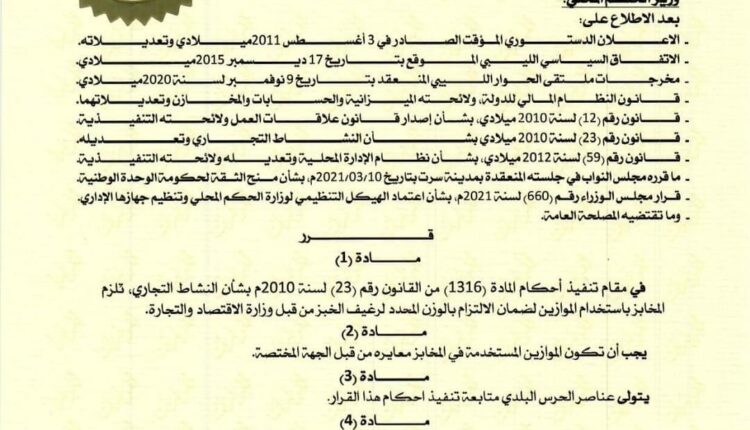 وزير الحكم المحلي:
بعد الاطلاع على:
- الاعلان الدستوري المؤقت الصادر في 3 أغسطس 2011ميلادي وتعديلاته.
- الاتفاق السياسي الليبي الموقع بتاريخ 17 ديسمبر 2015ميلادي.
- مخرجات ملتقى الحوار الليبي المنعقد بتاريخ 9 نوفمبر لسنة 2020ميلادي.
- قانون النظام المالي للدولة، ولائحته الميزانية والحسابات والمخازن وتعديلاتهما.
- قانون رقم (12) لسنة 2010 ميلادي، بشأن إصدار قانون علاقات العمل ولائحته التنفيذية.
- قانون رقم (23) لسنة 2010 ميلادي بشأن النشاط التجاري وتعديله.
- قانون رقم (59) لسنة 2012 ميلادي، بشأن نظام الإدارة المحلية وتعديله ولائحته التنفيذية.
- ما قرره مجلس النواب في جلسته المنعقدة بمدينة سرت بتاريخ 2021/03/10م، بشأن منح الثقة لحكومة الوحدة الوطنية.
- قرار مجلس الوزراء رقم (660) لسنة 2021م، بشأن اعتماد الهيكل التنظيمي لوزارة الحكم المحلي وتنظيم جهازها الإداري.
- وما تقتضيه المصلحة العامة.
قرر
مادة (1)
في مقام تنفيذ أحكام المادة (1316) من القانون رقم (23) لسنة 2010م بشأن النشاط التجاري، تلزم
المخابز باستخدام الموازين لضمان الالتزام بالوزن المحدد لرغيف الخبز من قبل وزارة الاقتصاد والتجارة.
مادة (2)
يجب أن تكون الموازين المستخدمة في المخابز معايره من قبل الجهة المختصة.
مادة (3)
يتولى عناصر الحرس البلدي متابعة تنفيذ احكام هذا القرار.
مادة (4)